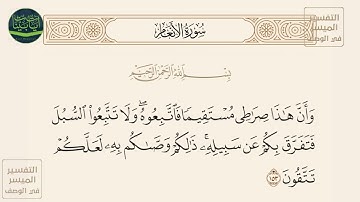 سُورَةُ الأَنْعَامِ
التفسير
الميسر
في الوصف
بِسْمِ اللَّهِ الرَّحْمَٰنِ الرَّحِيمِ
وَأَنَّ هَٰذَا صِرَٰطِى مُسْتَقِيمًا فَٱتَّبِعُوهُ ۖ وَلَا تَتَّبِعُوا۟ ٱلسُّبُلَ
فَتَفَرَّقَ بِكُمْ عَن سَبِيلِهِۦ ۚ ذَٰلِكُمْ وَصَّىٰكُم بِهِۦ لَعَلَّكُمْ
تَتَّقُونَ ١٥٣
التفسير
الميسر
في الوصف